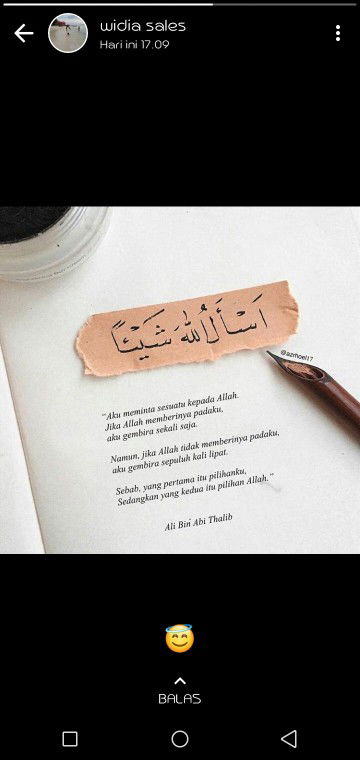 widia sales
Hari ini 17.09
اَسْأَلُ اللهَ شَيْئًا
@azrhoel17
"Aku meminta sesuatu kepada Allah.
Jika Allah memberinya padaku,
aku gembira sekali saja.
Namun, jika Allah tidak memberinya padaku,
aku gembira sepuluh kali lipat.
Sebab, yang pertama itu pilihanku,
Sedangkan yang kedua itu pilihan Allah."
Ali Bin Abi Thalib
😇
BALAS